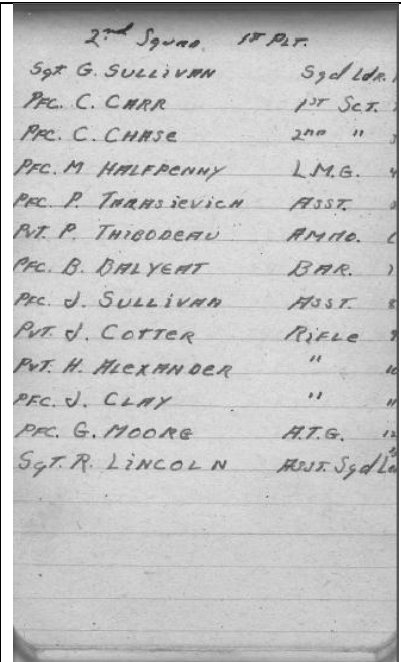 2nd Squad 1ST PLT.
Sgt G. SULLIVAN Sqd Ldr. 1
PFC. C. CARR 1ST Sct. 2
PFC. C. CHASE 2nd " 3
PFC. M HALFPENNY L.M.G. 4
PFC. P. TARASIEVICH ASST. 5
PVT. P. THIBODEAU AMMO. 6
PFC. B. BALYEAT BAR. 7
PFC. J. SULLIVAN ASST. 8
PVT. J. COTTER RIFLE 9
PVT. H. ALEXANDER " 10
PFC. J. CLAY " 11
PFC. G. MOORE A.T.G. 12
SGT. R. LINCOLN ASST. Sqd